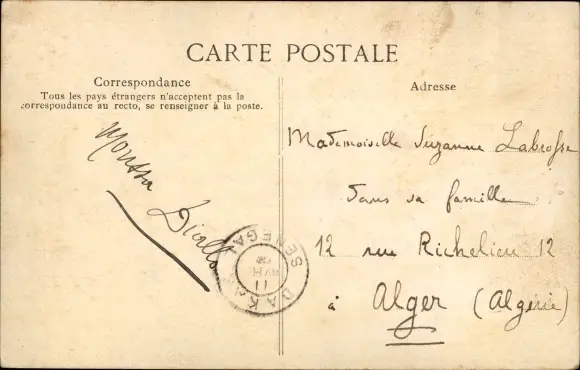 CARTE POSTALE
Correspondance
Tous les pays étrangers n'acceptent pas la
correspondance au recto, se renseigner à la poste.
Moussa Diallo
Adresse
Mademoiselle Suzanne Labrosse
dans sa famille
12 rue Richelieu 12
à Alger (Algérie)
DAKAR
SENEGAL
11
AVR